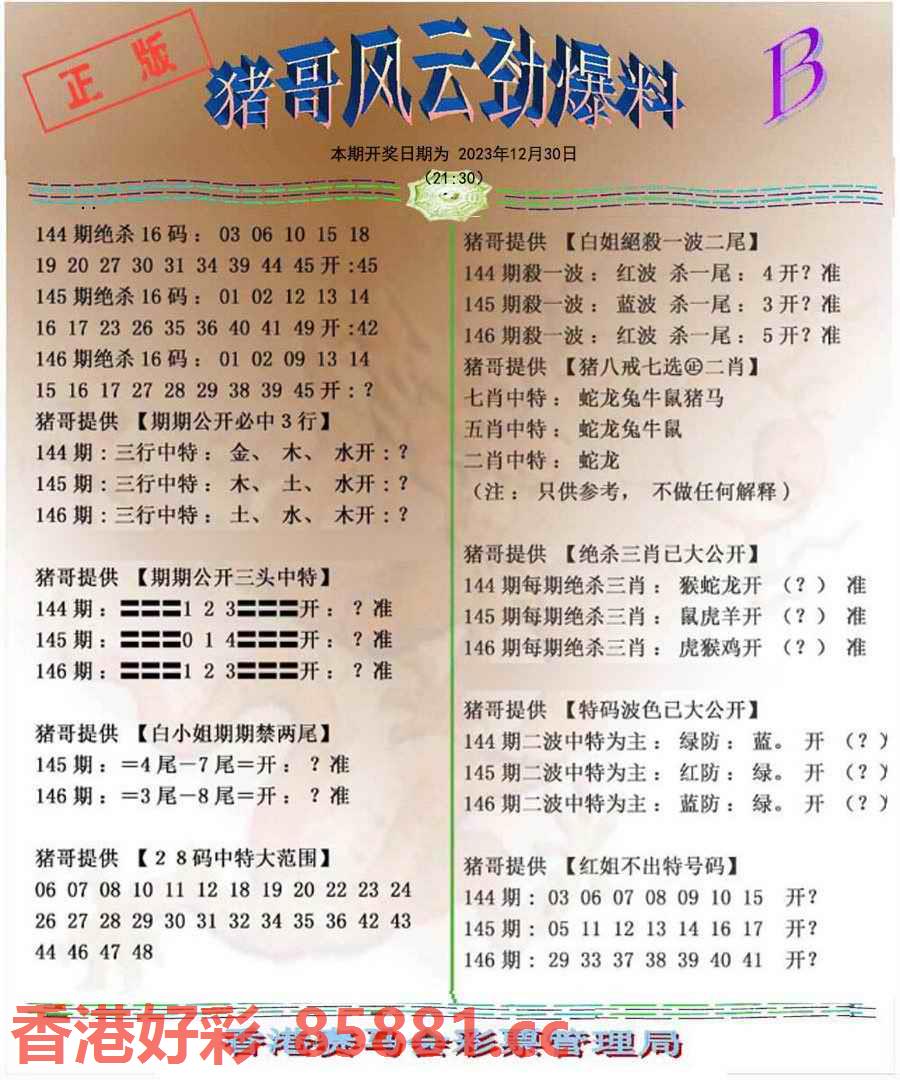 正版
猪哥风云劲爆料
B
本期开奖日期为 2023年12月30日
(21:30)
144期绝杀16码：03 06 10 15 18
19 20 27 30 31 34 39 44 45开:45
145期绝杀16码：01 02 12 13 14
16 17 23 26 35 36 40 41 49开:42
146期绝杀16码：01 02 09 13 14
15 16 17 27 28 29 38 39 45开:？
猪哥提供 【期期公开必中3行】
144期:三行中特：金、木、水开:？
145期:三行中特：木、土、水开:？
146期:三行中特：土、水、木开:？
猪哥提供 【期期公开三头中特】
144期：〓〓〓1 2 3〓〓〓开：？准
145期：〓〓〓0 1 4〓〓〓开：？准
146期：〓〓〓1 2 3〓〓〓开：？准
猪哥提供 【白小姐期期禁两尾】
145期：=4尾—7尾=开：？准
146期：=3尾—8尾=开：？准
猪哥提供 【28码中特大范围】
06 07 08 10 11 12 18 19 20 22 23 24
26 27 28 29 30 31 32 34 35 36 42 43
44 46 47 48
猪哥提供 【白姐絕殺一波二尾】
144期殺一波：红波 杀一尾：4开？准
145期殺一波：蓝波 杀一尾：3开？准
146期殺一波：红波 杀一尾：5开？准
猪哥提供 【猪八戒七选㊣二肖】
七肖中特：蛇龙兔牛鼠猪马
五肖中特：蛇龙兔牛鼠
二肖中特：蛇龙
（注：只供参考，不做任何解释）
猪哥提供 【绝杀三肖已大公开】
144期每期绝杀三肖：猴蛇龙开（？）准
145期每期绝杀三肖：鼠虎羊开（？）准
146期每期绝杀三肖：虎猴鸡开（？）准
猪哥提供 【特码波色已大公开】
144期二波中特为主：绿防：蓝。开（？）
145期二波中特为主：红防：绿。开（？）
146期二波中特为主：蓝防：绿。开（？）
猪哥提供 【红姐不出特号码】
144期：03 06 07 08 09 10 15 开？
145期：05 11 12 13 14 16 17 开？
146期：29 33 37 38 39 40 41 开？
香港好彩 85881.cc
香港赛马会彩票管理局